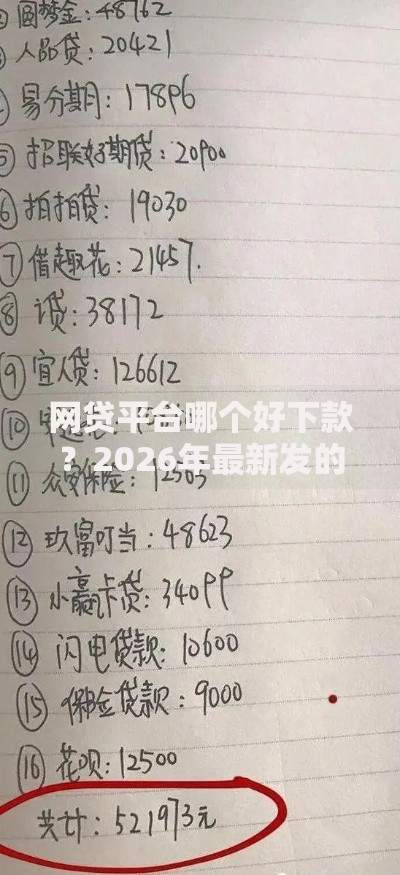 ② 圆梦金:48762
③ 人品贷:20421
易分期:17896
⑤ 招联好期贷:20900
⑥ 拍拍贷:19030
⑦ 借趣花:21457.
⑧ 讠贷:38172
⑨ 宜人贷:126612
网贷平台哪个好下款
⑩
?2026年最新发的
⑪ 众安保险:12505
⑫ 玖富叮当:48623
⑬ 小赢卡贷:34099
⑭ 闪电贷款:10600
⑮ 保险贷款:9000
⑯ 花呗:12500
共计:521973元